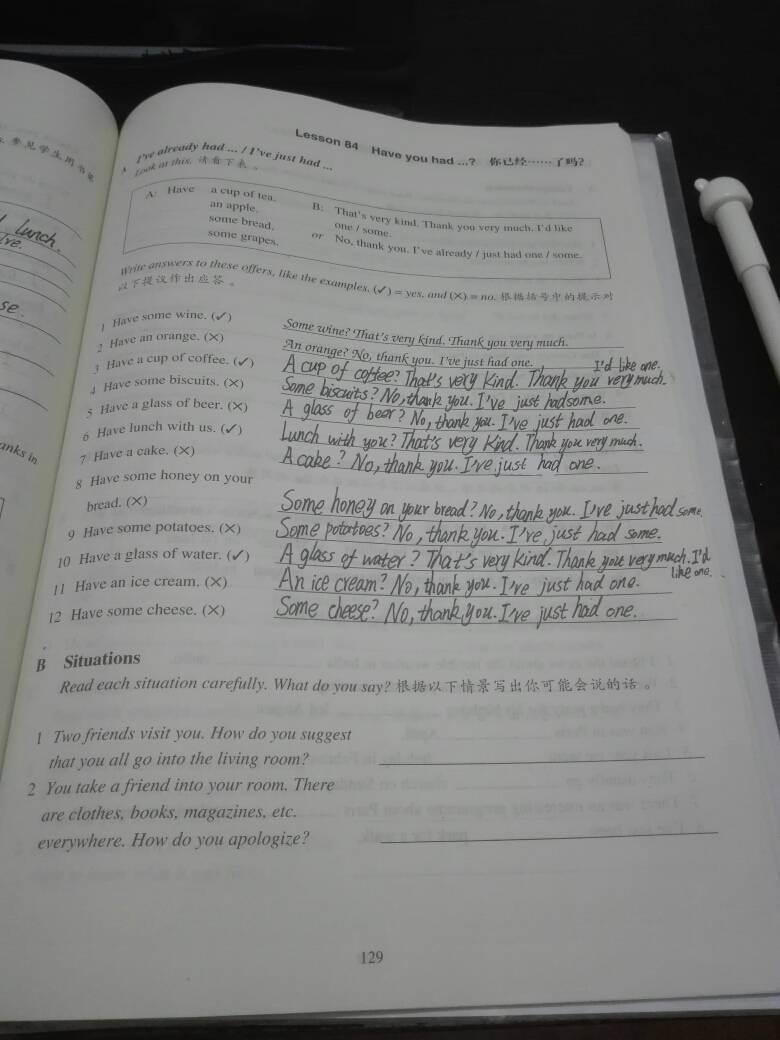 参见学生用书见
lunch.
I've.
se.
anks in
Lesson 84 Have you had ...? 你已经……了吗?
A I've already had ... / I've just had ...
Look at this. 请看下表。
A: Have a cup of tea.
an apple.
some bread.
some grapes.
B: That's very kind. Thank you very much. I'd like
one / some.
or No, thank you. I've already / just had one / some.
Write answers to these offers, like the examples. (✓) = yes, and (✕) = no. 根据括号中的提示对
以下提议作出应答。
1 Have some wine. (✓) Some wine? That's very kind. Thank you very much.
2 Have an orange. (✕) An orange? No, thank you. I've just had one.
3 Have a cup of coffee. (✓) A cup of coffee? That's very kind. Thank you very much. I'd like one.
4 Have some biscuits. (✕) Some biscuits? No, thank you. I've just had some.
5 Have a glass of beer. (✕) A glass of beer? No, thank you. I've just had one.
6 Have lunch with us. (✓) Lunch with you? That's very kind. Thank you very much.
7 Have a cake. (✕) A cake? No, thank you. I've just had one.
8 Have some honey on your
bread. (✕) Some honey on your bread? No, thank you. I've just had some.
9 Have some potatoes. (✕) Some potatoes? No, thank you. I've just had some.
10 Have a glass of water. (✓) A glass of water? That's very kind. Thank you very much. I'd
like one.
11 Have an ice cream. (✕) An ice cream? No, thank you. I've just had one.
12 Have some cheese. (✕) Some cheese? No, thank you. I've just had one.
B Situations
Read each situation carefully. What do you say? 根据以下情景写出你可能会说的话。
1 Two friends visit you. How do you suggest
that you all go into the living room?
2 You take a friend into your room. There
are clothes, books, magazines, etc.
everywhere. How do you apologize?
129